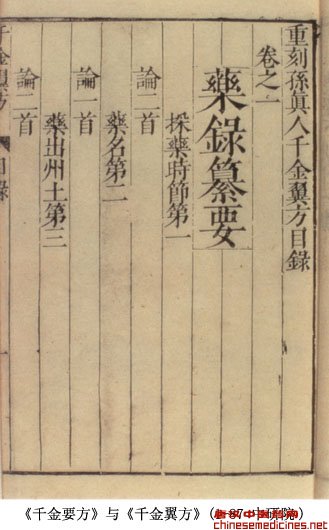 重刻孫眞人千金翼方目錄
卷之一
藥錄纂要
採藥時節第一
論二首
藥名第二
論二首
藥出州土第三
論二首
千金翼方 目錄
《千金要方》与《千金翼方》
chinesemedicines.net